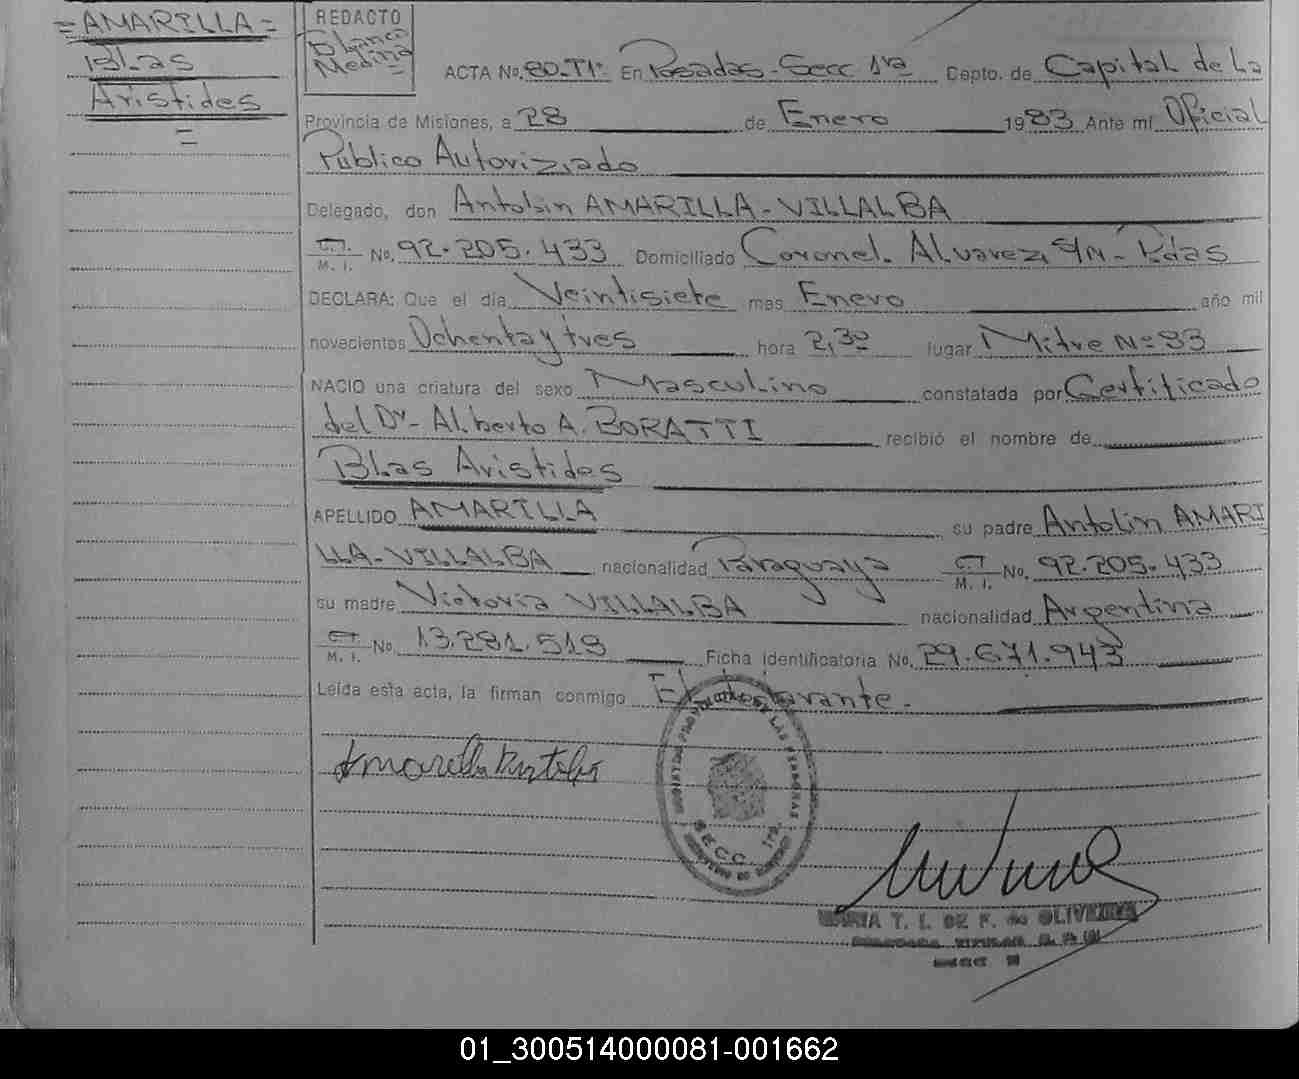 = AMARILLA =
Blas
Aristides
=
REDACTO
Blanca
Medina
=
ACTA No. 80-T1º En Posadas-Secc 1ra Depto. de Capital de La
Provincia de Misiones, a 28 de Enero 1983 Ante mí Oficial
Publico Autorizado
Delegado, don Antolin AMARILLA-VILLALBA
C.I. M. I. No. 92.205.433 Domiciliado Coronel. Alvarez S/N-Pdas
DECLARA: Que el día Veintisiete mes Enero año mil
novecientos Ochenta y tres hora 2,30 lugar Mitre Nº 83
NACIO una criatura del sexo Masculino constatada por Certificado
del Dr- Alberto A. BORATTI recibió el nombre de
Blas Aristides
APELLIDO AMARILLA su padre Antolin AMARI
LLA-VILLALBA nacionalidad Paraguaya C.I. M. I. No. 92.205.433
su madre Victoria VILLALBA nacionalidad Argentina
C.I. M. I. No. 13.281.519 Ficha Identificatoria No. 29.671.943
Leída esta acta, la firman conmigo El declarante.
Amarilla Antolin
SECC. 1ra.
MARIA T. I. DE F. de OLIVEIRA
01_300514000081-001662